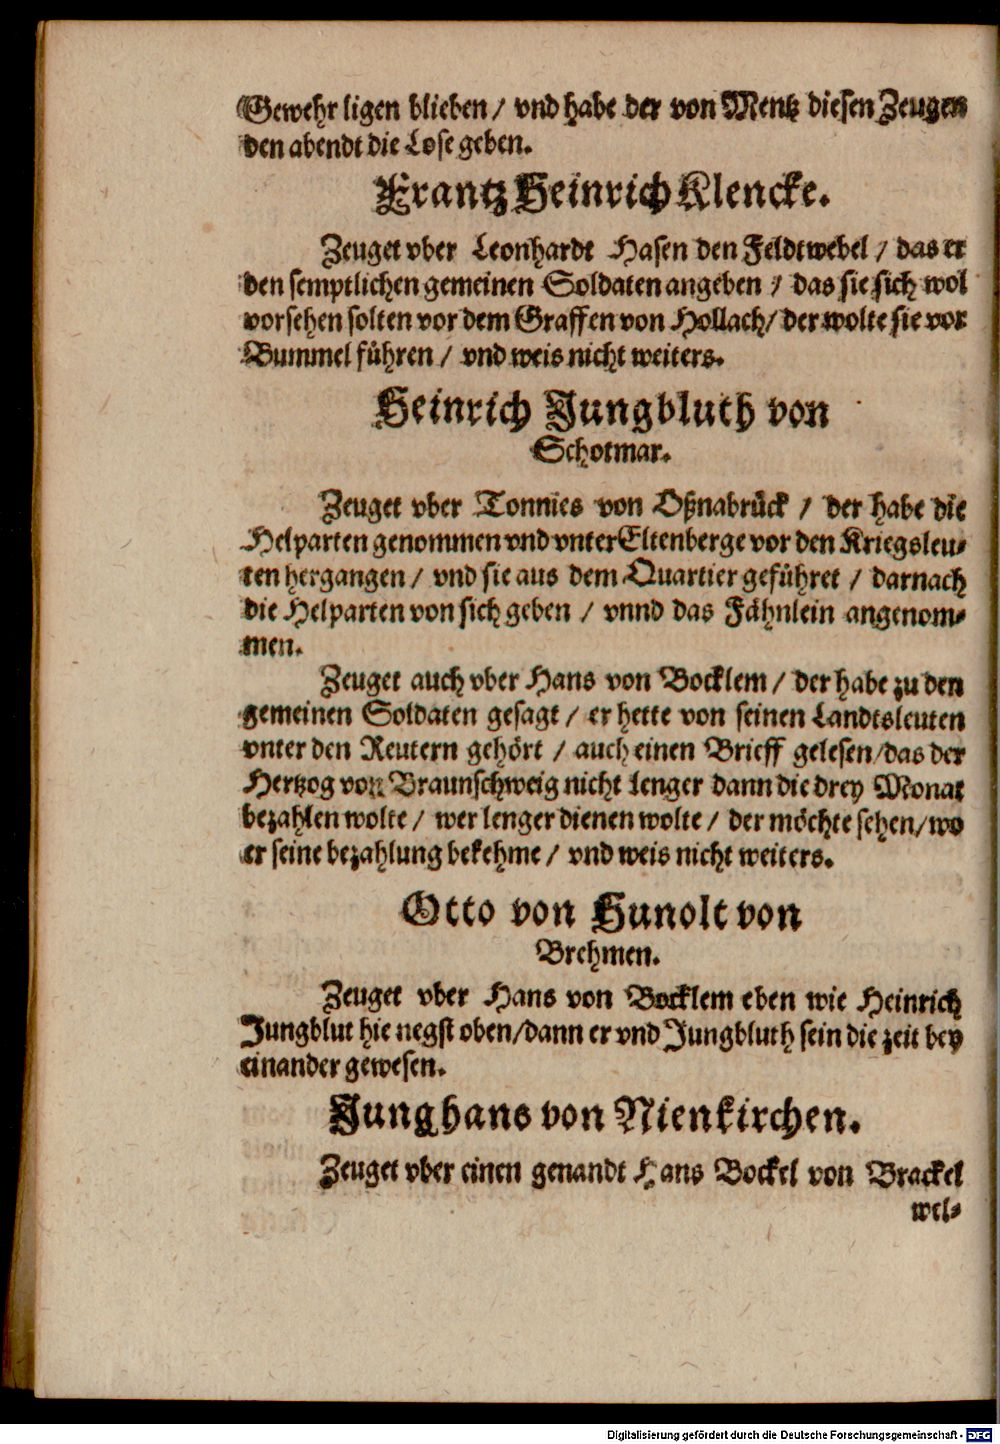 Gewehr ligen blieben / vnd habe der von Mentz diesen Zeugen
den abendt die Lose geben.
Frantz Heinrich Klencke.
Zeuget vber Leonhardt Hasen den Feldtwebel / das er
den semptlichen gemeinen Soldaten angeben / das sie sich wol
vorsehen solten vor dem Graffen von Hollach / der wolte sie vor
Bummel führen / vnd weis nicht weiters.
Heinrich Jungbluth von
Schotmar.
Zeuget vber Tonnies von Oßnabrück / der habe die
Helparten genommen vnd vnter Eltenberge vor den Kriegsleu-
ten hergangen / vnd sie aus dem Quartier geführet / darnach
die Helparten von sich geben / vnnd das Fähnlein angenom-
men.
Zeuget auch vber Hans von Bocklem / der habe zu den
gemeinen Soldaten gesagt / er hette von seinen Landtsleuten
vnter den Reutern gehört / auch einen Brieff gelesen / das der
Hertzog von Braunschweig nicht lenger dann die drey Monat
bezahlen wolte / wer lenger dienen wolte / der möchte sehen / wo
er seine bezahlung bekehme / vnd weis nicht weiters.
Otto von Hunolt von
Brehmen.
Zeuget vber Hans von Bocklem eben wie Heinrich
Jungblut hie negst oben / dann er vnd Jungbluth sein die zeit bey
einander gewesen.
Junghans von Nienkirchen.
Zeuget vber einen genandt Hans Bockel von Brackel
wel-
Digitalisierung gefördert durch die Deutsche Forschungsgemeinschaft - DFG